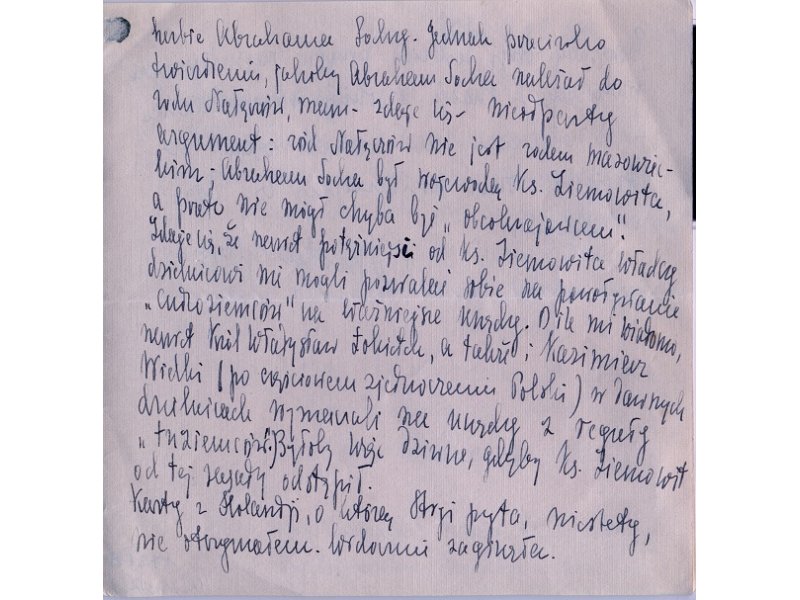 herbie Abrahama Sochy. Jednak przeciwko
twierdzeniu, jakoby Abraham Socha należał do
rodu Nałęczów, mam - zdaje się - nieodparty
argument: ród Nałęczów nie jest rodem mazowiec-
kim; Abraham Socha był wojewodą Ks. Ziemowita,
a przeto nie mógł chyba być „obcokrajowcem".
Zdaje się, że nawet potężniejsi od Ks. Ziemowita władcy
dzielnicowi nie mogli pozwalać sobie na powoływanie
„cudzoziemców" na ważniejsze urzędy. O ile mi wiadomo,
nawet Król Władysław Łokietek, a także i Kazimierz
Wielki (po częściowem zjednoczeniu Polski) w dawnych
dzielnicach wyznaczali na urzędy z reguły
„tuziemców". Byłoby więc dziwne, gdyby Ks. Ziemowit
od tej zasady odstąpił.
Karty z Holandji, o którą Stryj pyta, niestety,
nie otrzymałem. Widocznie zaginęła.